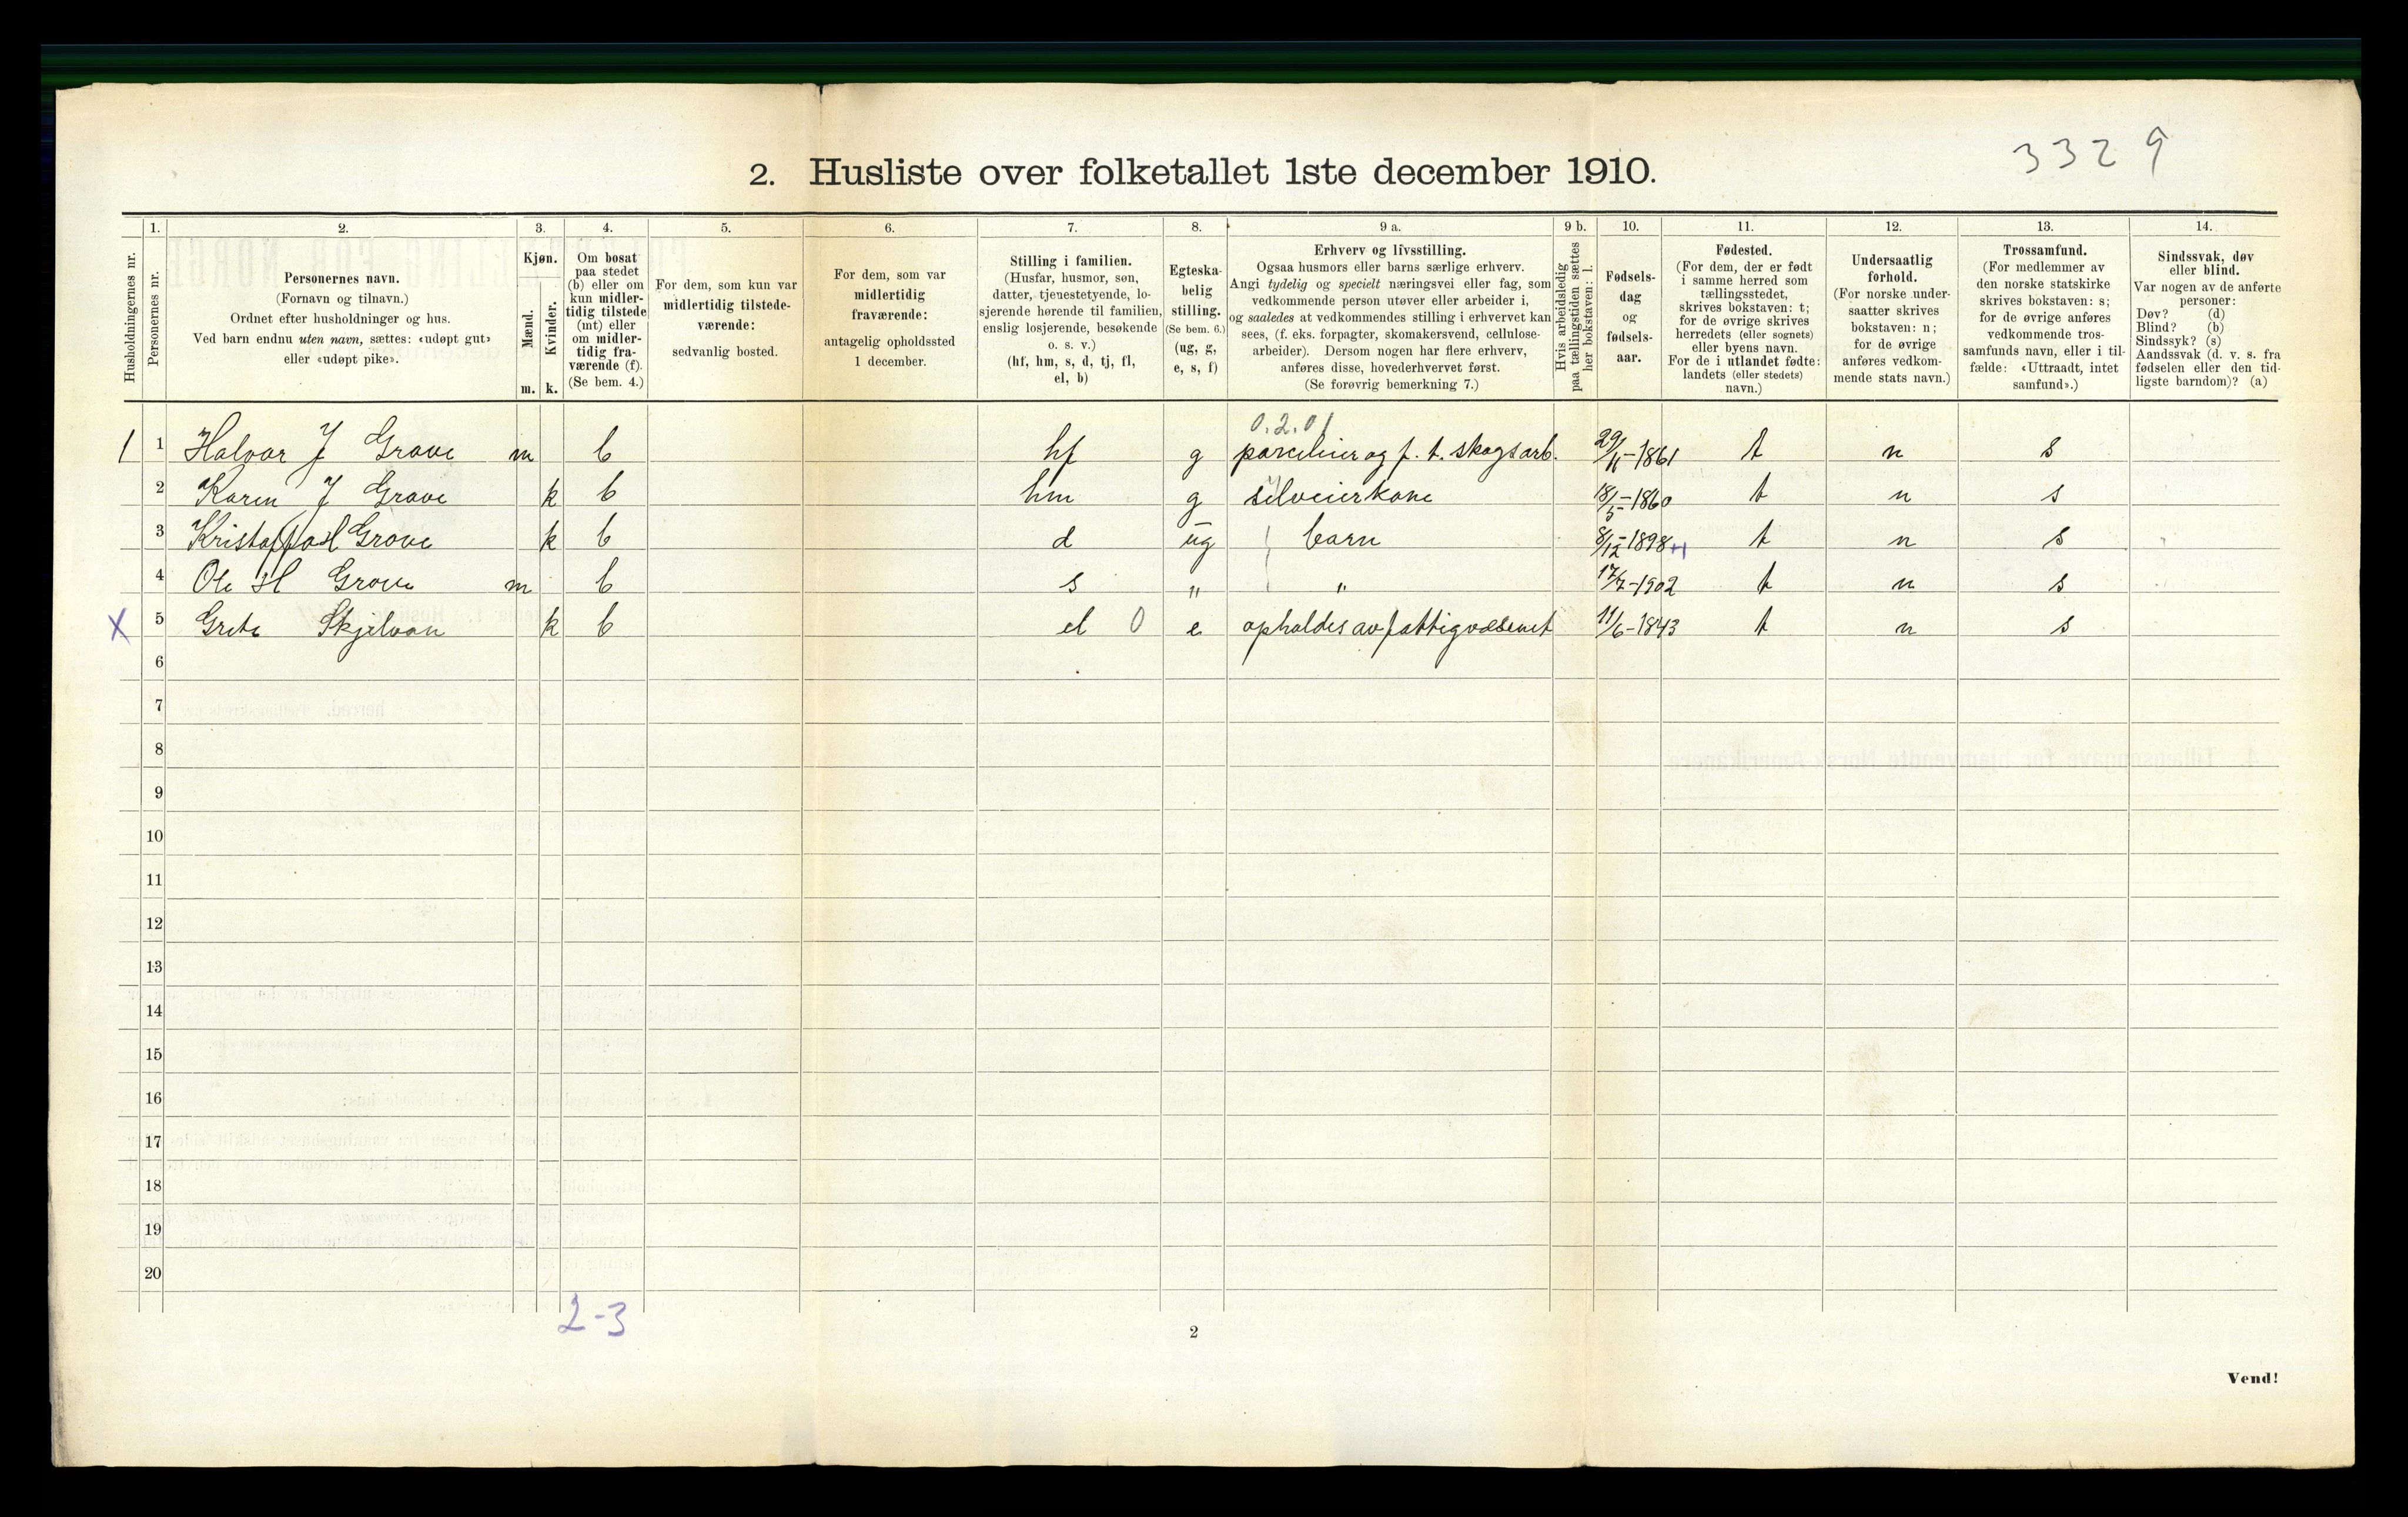 3329
2. Husliste over folketallet 1ste december 1910.
Husholdningernes nr.
1.
Personernes nr.
2.
Personernes navn.
(Fornavn og tilnavn.)
Ordnet efter husholdninger og hus.
Ved barn endnu uten navn, sættes: «udøpt gut»
eller «udøpt pike».
3.
Kjøn.
Mænd.
Kvinder.
m. k.
4.
Om bosat
paa stedet
(b) eller om
kun midler-
tidig tilstede
(mt) eller
om midler-
tidig fra-
værende (f).
(Se bem. 4.)
5.
For dem, som kun var
midlertidig tilstede-
værende:
sedvanlig bosted.
6.
For dem, som var
midlertidig
fraværende:
antagelig opholdssted
1 december.
7.
Stilling i familien.
(Husfar, husmor, søn,
datter, tjenestetyende, lo-
sjerende hørende til familien,
enslig losjerende, besøkende
o. s. v.)
(hf, hm, s, d, tj, fl,
el, b)
8.
Egteska-
belig
stilling.
(Se bem. 6.)
(ug, g,
e, s, f)
9 a.
Erhverv og livsstilling.
Ogsaa husmors eller barns særlige erhverv.
Angi tydelig og specielt næringsvei eller fag, som
vedkommende person utøver eller arbeider i,
og saaledes at vedkommendes stilling i erhvervet kan
sees, (f. eks. forpagter, skomakersvend, cellulose-
arbeider). Dersom nogen har flere erhverv,
anføres disse, hovederhvervet først.
(Se forøvrig bemerkning 7.)
9 b.
Hvis arbeidsledig
paa tællingstiden sættes
her bokstaven: l.
10.
Fødsels-
dag
og
fødsels-
aar.
11.
Fødested.
(For dem, der er født
i samme herred som
tællingsstedet,
skrives bokstaven: t;
for de øvrige skrives
herredets (eller sognets)
eller byens navn.
For de i utlandet fødte:
landets (eller stedets)
navn.)
12.
Undersaatlig
forhold.
(For norske under-
saatter skrives
bokstaven: n;
for de øvrige
anføres vedkom-
mende stats navn.)
13.
Trossamfund.
(For medlemmer av
den norske statskirke
skrives bokstaven: s;
for de øvrige anføres
vedkommende tros-
samfunds navn, eller i til-
fælde: «Uttraadt, intet
samfund».)
14.
Sindssvak, døv
eller blind.
Var nogen av de anførte
personer:
Døv? (d)
Blind? (b)
Sindssyk? (s)
Aandssvak (d. v. s. fra
fødselen eller den tid-
ligste barndom)? (a)
0.2.01
1 1 Halvor J Grave m b hf g parcelier og f. t. skogsarb. 29/11-1861 t n s
2 Karen J Grave k b hm g selveierkone 18/5-1860 t n s
3 H Grave k b d ug barn 8/12-1898 +1 t n s
4 Ole H Grave m b s " " 17/7-1902 t n s
X 5 Grete Skjelvan k b el 0 e opholdes av fattigvæsenet 11/6-1843 t n s
6
7
8
9
10
11
12
13
14
15
16
17
18
19
20
2-3
2
Vend!